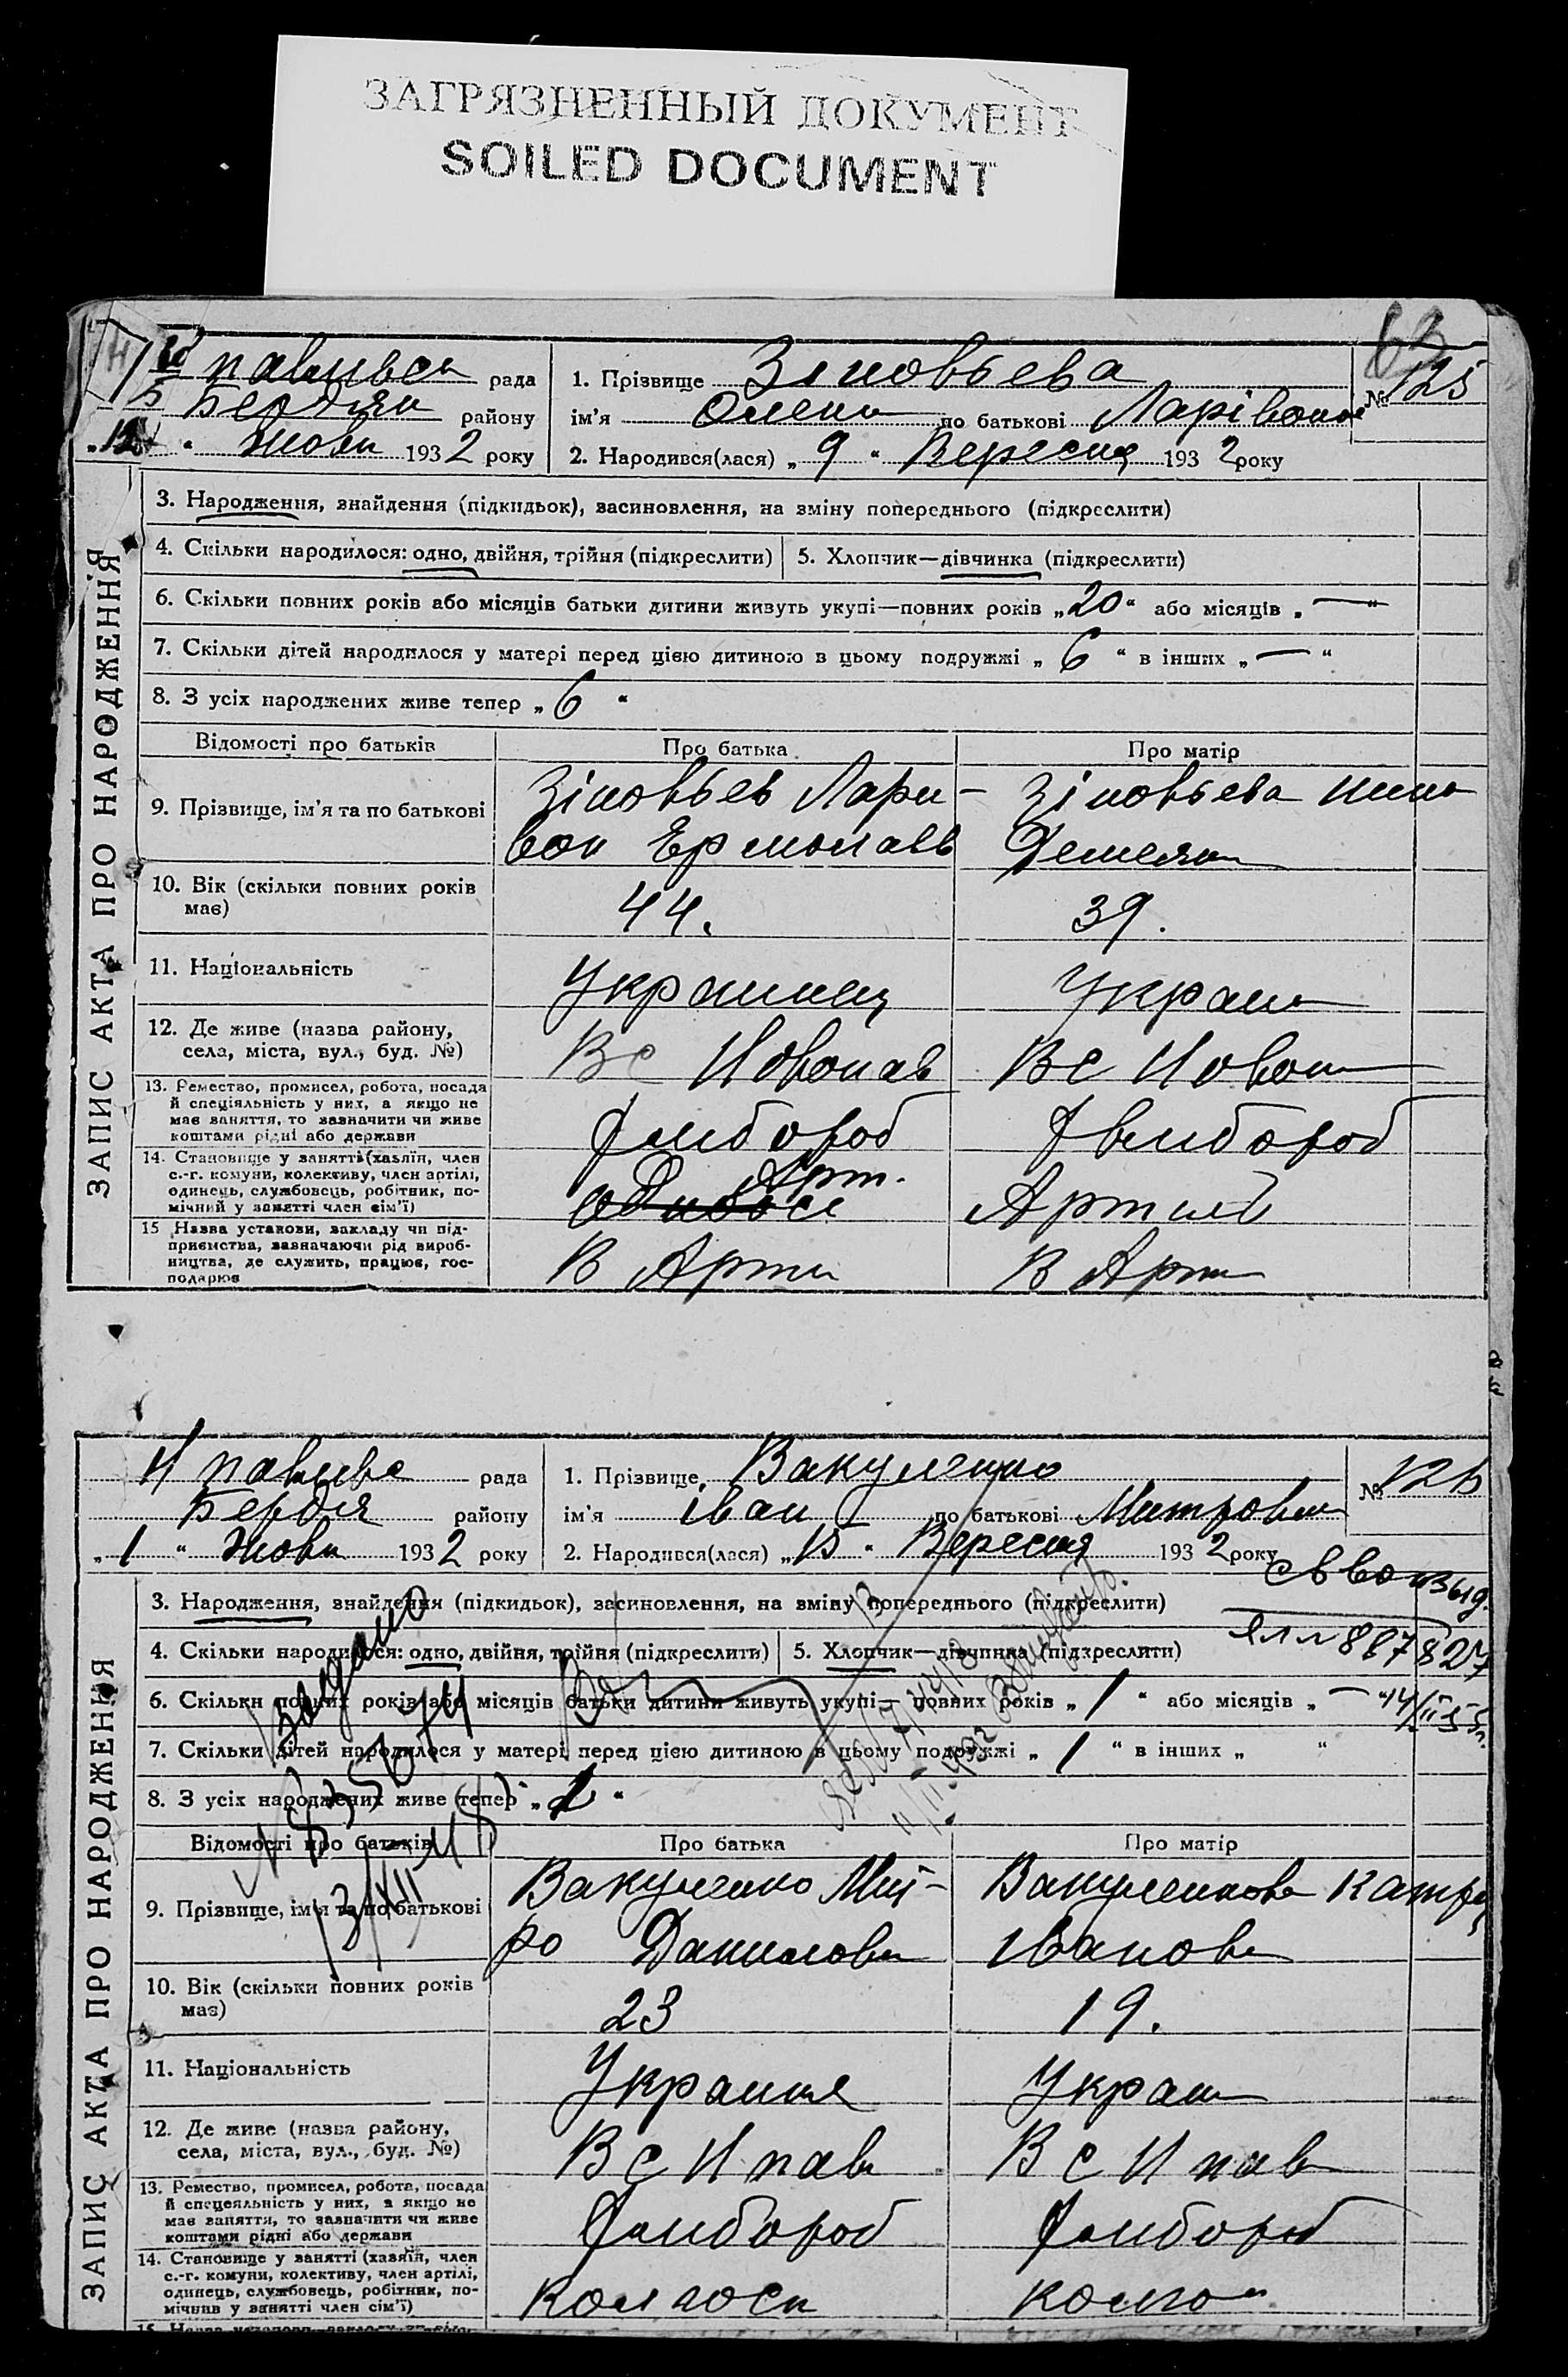 ЗАГРЯЗНЕННЫЙ ДОКУМЕНТ
SOILED DOCUMENT
63
павливсь рада
Бердян району
Жовтн 1932 року
1. Прізвище Зіновьева
ім'я Олена по батькові Ларівонов
№ 125
2. Народився(лася) „9“ Вересня 1932 року
ЗАПИС АКТА ПРО НАРОДЖЕННЯ
3. Народження, знайдення (підкидьок), васиновлення, на зміну попереднього (підкреслити)
4. Скільки народилося: одно, двійня, трійня (підкреслити)
5. Хлопчик—дівчинка (підкреслити)
6. Скільки повних років або місяців батьки дитини живуть укупі—повних років „20“ або місяців „—“
7. Скільки дітей народилося у матері перед цією дитиною в цьому подружжі „6“ в інших „—“
8. З усіх народжених живе тепер „6“
Відомості про батьків
Про батька
Про матір
9. Прізвище, ім'я та по батькові
Зіновьев Лари-
вон Ермолаев
Зіновьева
10. Вік (скільки повних років
має)
44.
39.
11. Національність
Украинец
Украин
12. Де живе (назва району,
села, міста, вул., буд. №)
ВС Новопав
ВС Новоп
13. Ремество, промисел, робота, посада
й спеціяльність у них, а якщо не
має заняття, то зазначити чи живе
коштами рідні або держави
14. Становище у занятті (хазяїн, член
с.-г. комуни, колективу, член артілі,
одинець, службовець, робітник, по-
мічний у занятті член сім'ї)
Арт.
Артил
15 Назва установи, закладу чи під-
приємства, зазначаючи рід вироб-
ництва, де служить, працює, гос-
подарює
В Арти
В Арти
Н павливс рада
Бердя району
„1“ Жовтн 1932 року
1. Прізвище Вакуленко
ім'я Іван по батькові Митрович
№ 126
2. Народився(лася) „15“ Вересня 1932 року
ЗАПИС АКТА ПРО НАРОДЖЕННЯ
3. Народження, знайдення (підкидьок), засиновлення, на зміну попереднього (підкреслити)
4. Скільки народилося: одно, двійня, трійня (підкреслити)
5. Хлопчик—дівчинка (підкреслити)
887827
6. Скільки повних років або місяців батьки дитини живуть укупі—повних років „1“ або місяців „—“
7. Скільки дітей народилося у матері перед цією дитиною в цьому подружжі „1“ в інших „ “
8. З усіх народжених живе тепер „ “
Видано
Відомості про батьків
Про батька
Про матір
9. Прізвище, ім'я та по батькові
Вакуленко Мит-
ро Данилови
Вакуленкова Катр
Іванов
10. Вік (скільки повних років
має)
23
19.
11. Національність
Украин
Украин
12. Де живе (назва району,
села, міста, вул., буд. №)
ВС Н пав
ВС Н пав
13. Ремество, промисел, робота, посада
й спецеяльність у них, а якщо не
має заняття, то зазначити чи живе
коштами рідні або держави
14. Становище у занятті (хазяїн, член
с.-г. комуни, колективу, член артілі,
одинець, службовець, робітник, по-
мічнив у занятті член сім'ї)
Колгосп
Колгосп